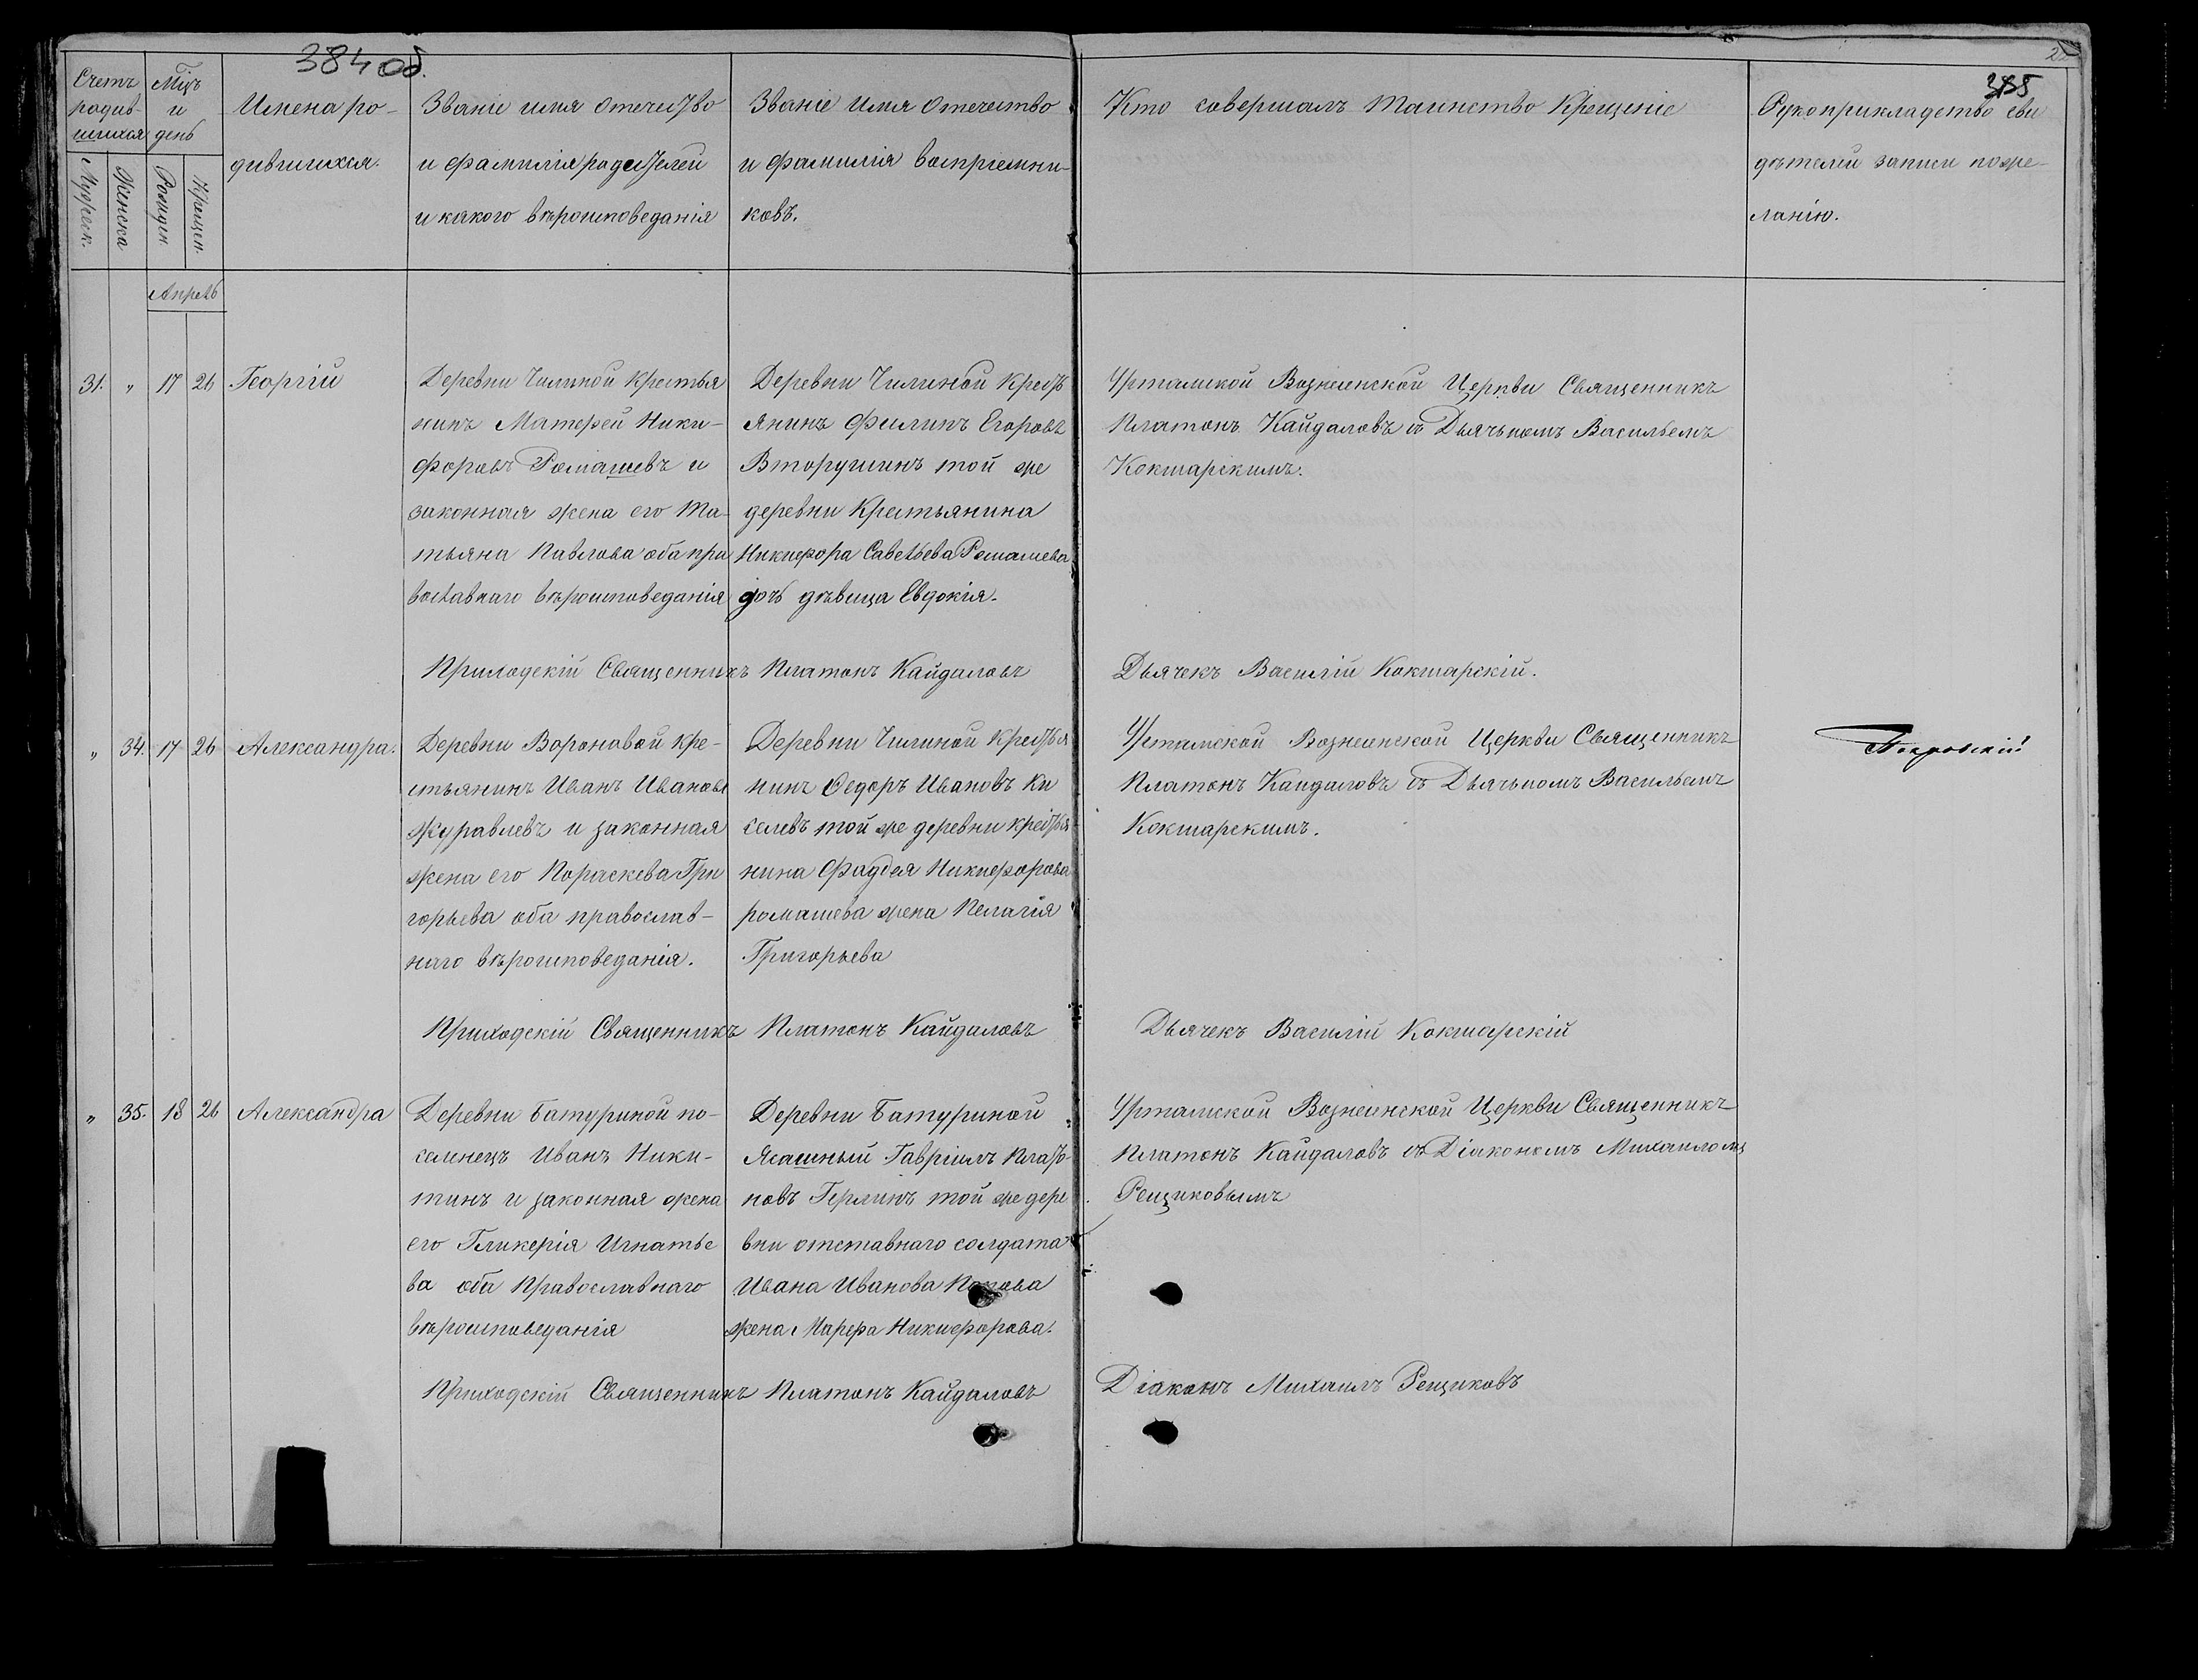 384 об.
385
Счетъ родив-шихся
Мужеск.
Женска
Мцъ и день
Рожден.
Крещен.
Имена ро-
дившихся.
Званіе имя отечество
и фамилія родителей
и какого вѣроисповеданія
Званіе имя отечество
и фамилія воспріемни-
ковъ.
Кто совершалъ таинство Крещеніе
Рукоприкладство сви
дѣтелей записи поже-
ланію.
Апрель
31. " 17 26 Георгій
Деревни Чилиной Крестья
нинъ Матфей Ники-
форовъ Ромашевъ и
законная жена его Та-
тьяна Павлова оба пра
вославнаго вѣроисповеданія
Деревни Чилиной Крест
янинъ Филипъ Егоровъ
Вторушинъ той же
деревни Крестьянина
Никифора Савельева Ромашева
дочь дѣвица Евдокія.
Уртамской Вознесенской Церкви Священникъ
Платонъ Кайдаловъ съ Дьячькомъ Васильемъ
Кокшарскимъ.
Приходскій Священникъ Платонъ Кайдаловъ
Дьячекъ Василій Кокшарскій.
" 34. 17 26 Александра.
Деревни Вороновой кре-
стьянинъ Иванъ Ивановъ
Журавлевъ и законная
жена его Пораскева Гри
горьева оба православ-
наго вѣроисповеданія.
Деревни Чилиной крестья
нинъ Ѳедоръ Ивановъ Ки
селевъ той же деревни крестья
нина Фадѣя Никифорова
ромашева жена Пелагія
Григорьева
Уртамской Вознесенской Церкви Священникъ
Платонъ Кайдаловъ съ Дьячькомъ Васильемъ
Кокшарскимъ.
Покровскій
Приходскій Священникъ Платонъ Кайдаловъ
Дьячекъ Василій Кокшарскій
" 35. 18 26 Александра
Деревни Батуриной по-
селнецъ Иванъ Ники-
тинъ и законная жена
его Гликерія Игнатье
ва оба Православнаго
вѣроисповеданія
Деревни Батуриной
Ясашный Гавріилъ Плато-
новъ Герлинъ той же дере
вни отставнаго солдата
Ивана Иванова Попова
жена Марѳа Никифорова.
Уртамской Вознесенской Церкви Священникъ
Платонъ Кайдаловъ съ Діакономъ Михаиломъ
Рещиковымъ
Приходскій Священникъ Платонъ Кайдаловъ
Діаконъ Михаилъ Рещиковъ